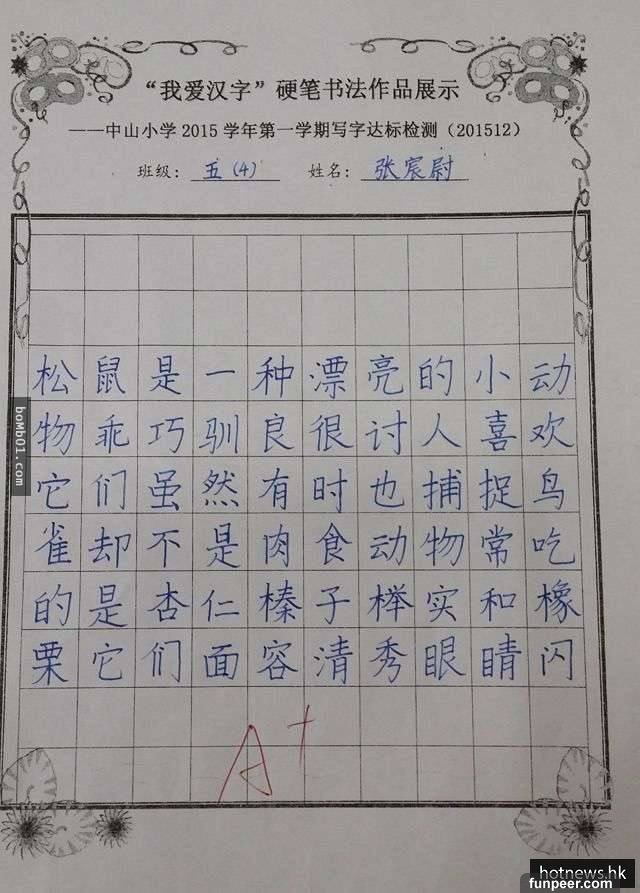 “我爱汉字”硬笔书法作品展示
——中山小学 2015 学年第一学期写字达标检测（201512）
班级：五（4） 姓名：张宸尉
松鼠是一种漂亮的小动
物乖巧驯良很讨人喜欢
它们虽然有时也捕捉鸟
雀却不是肉食动物常吃
的是杏仁榛子榉实和橡
栗它们面容清秀眼睛闪
A+
boMb01.com
hotnews.hk
funpeer.com